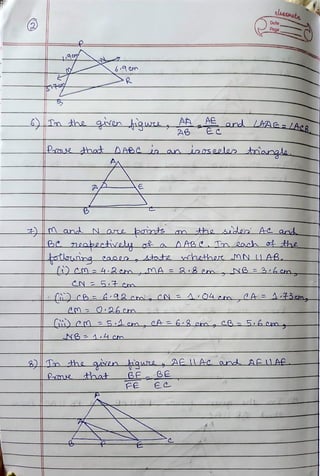 classmate
Date
Page
②
P
1.9cm
N
M
6.9 cm
R
5.7cm
B
6) In the given figure, AD/DB = AE/EC and ∠ADE = ∠ACB.
Prove that △ABC is an isosceles triangle.
A
D E
B C
7) M and N are points on the sides AC and
BC respectively of a △ABC. In each of the
following cases, state whether MN || AB.
(i) CM = 4.2 cm, MA = 2.8 cm, NB = 3.6 cm,
CN = 5.7 cm
(ii) CB = 6.92 cm, CN = 1.04 cm, CA = 1.73 cm,
CM = 0.26 cm
(iii) CM = 5.1 cm, CA = 6.8 cm, CB = 5.6 cm,
NB = 1.4 cm
8) In the given figure, DE || AC and DF || AE.
Prove that BF/FE = BE/EC.
A
D
B F E C